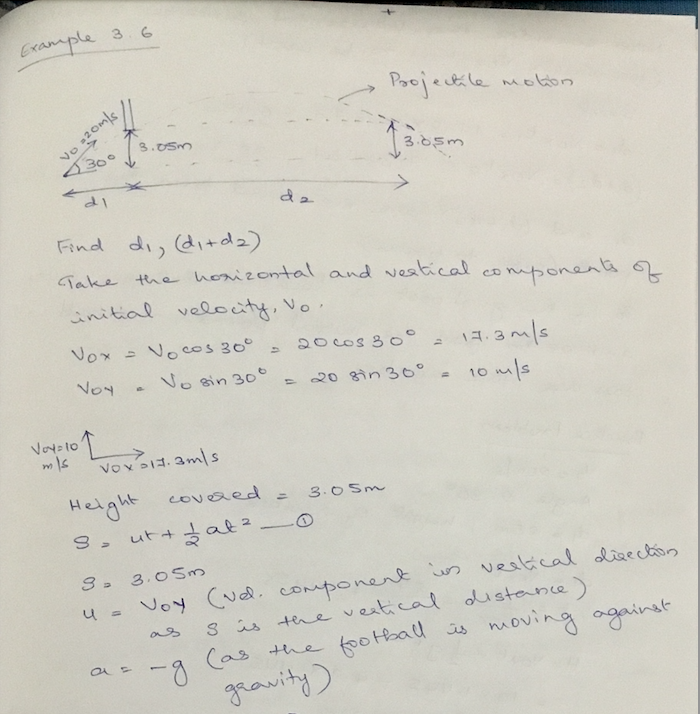 Example 3.6
Projectile motion
V0 = 20m/s
30°
3.05m
3.05m
d1
d2
Find d1, (d1+d2)
Take the horizontal and vertical components of
initial velocity, V0.
V0x = V0 cos 30° = 20 cos 30° = 17.3 m/s
V0y = V0 sin 30° = 20 sin 30° = 10 m/s
V0y=10
m/s
V0x=17.3m/s
Height covered = 3.05m
S = ut + 1/2 at² — ①
S = 3.05m
u = V0y (vel. component in vertical direction
as S is the vertical distance)
a = -g (as the football is moving against
gravity)